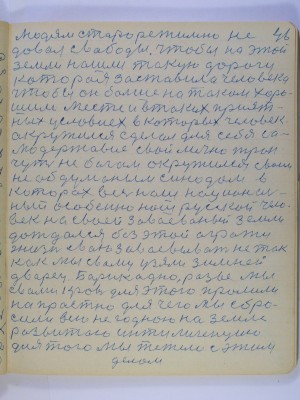 людям старорежимно не 46
довал свабоды, чтобы на этой
земли нашли такую дорогу
которая заставила человека
чтобы он больше на таком хоро-
шим месте и в таких прият-
ных условиях в которых человек
окружился сделал для себя са-
модержавие свой лично трон
чуть не богом окружился своим
не обдуманым синодом в
которах весь наш национал-
ный особенно наш русской чело-
век на своей завоеваный земли
дождался без этой ограды
жизни свою завоевывать не так
как мы своим взяли зимней
дварец Барикадно, разве мы
свою кровь для этого пролили
напрастно для чего мы сбро-
сили всю не годною на земле
развитаю интилигенцию
для того мы тежело с этим
делом